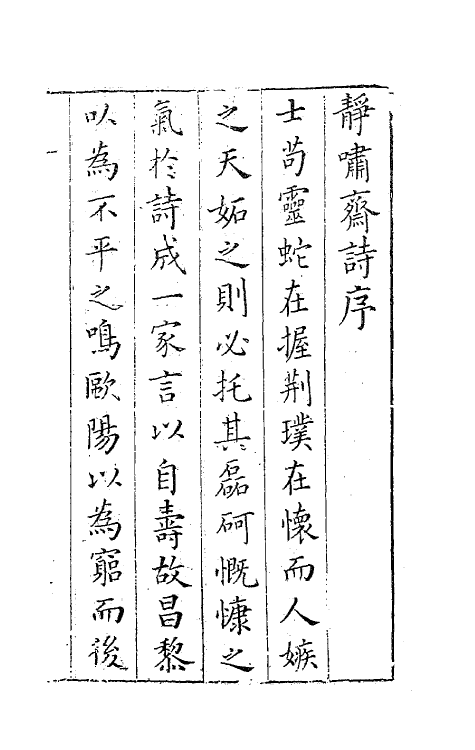 靜嘯齋詩序
士茍靈蛇在握荆璞在懷而人嫉
之天妬之則必托其磊砢慨慷之
氣於詩成一家言以自壽故昌黎
以為不平之鳴歐陽以為窮而後